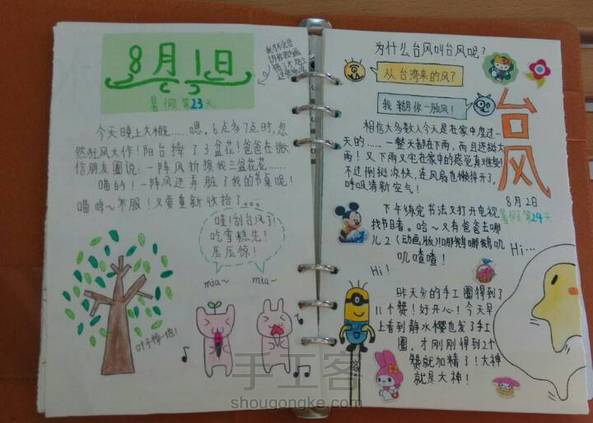 8月1日
暑假第23天
今天晚上大概……嗯，6点多7点时，忽
然狂风大作！阳台掉了3盆花！爸爸在微
信朋友圈说：一阵风祈损我三盆花花……
喵的！一阵风还弄脏了我的节桌呢！
重新收拾了
哇！刮台风了！
吃雪糕先！
压压惊！
mia~
mia~
叶子掉啦！
为什么台风叫台风呢？
从台湾来的风？
我糊你一脸风！
台风
相信大多数人今天是在家中度过一
天的……一整天都在下雨，而且还挺大
雨！又下雨又宅在家中的感觉真难受！
不过倒挺凉快，连风扇也懒得开了，
呼吸清新空气！
8月2日
暑假第24天
下午练完书法又打开电视
找节目看。哈~又有爸爸去哪
儿2（动画版）！
叽喳喳！
Hi…
Hi！
昨天的手工圈得到了
11个赞！好开心！今天早
上看到静水樱也发了手工
圈，才刚刚得到2个
赞就加精了！大神
就是大神！
手工客
shougongke.com